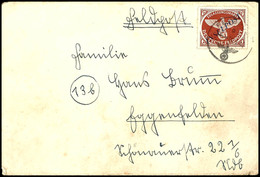 Feldpost
Familie
Hans Brumm
13b
Eggenfelden
Schönauerstr. 22 1/2
Ndb